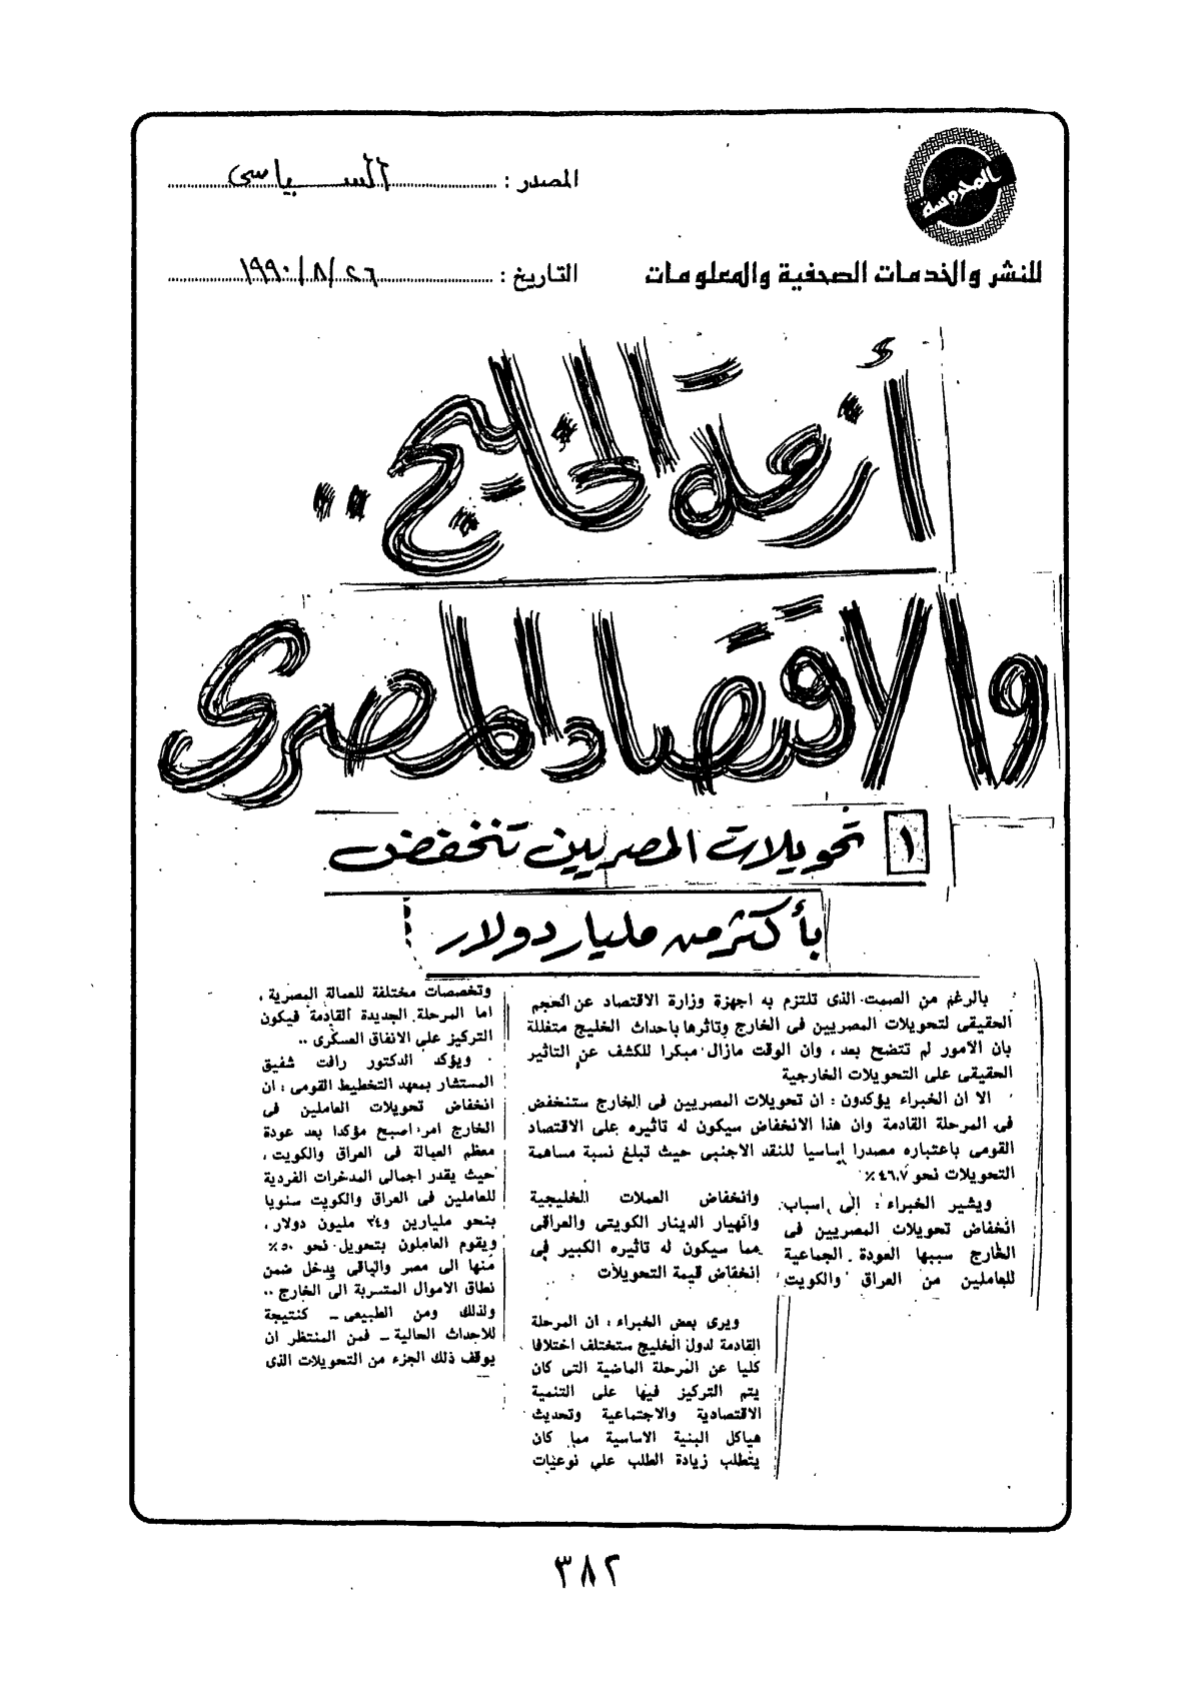 المحروسة
للنشر والخدمات الصحفية والمعلومات
المصدر : السياسى
التاريخ : ٢٦/٨/١٩٩٠
أزمة الخليج ..
والاقتصاد المصرى
١ تحويلات المصريين تنخفض
بأكثر من مليار دولار
بالرغم من الصمت الذى تلتزم به اجهزة وزارة الاقتصاد عن الحجم
الحقيقى لتحويلات المصريين فى الخارج وتاثرها باحداث الخليج متعللة
بان الامور لم تتضح بعد ، وان الوقت مازال مبكرا للكشف عن التاثير
الحقيقى على التحويلات الخارجية
الا ان الخبراء يؤكدون : ان تحويلات المصريين فى الخارج ستنخفض
فى المرحلة القادمة وان هذا الانخفاض سيكون له تاثيره على الاقتصاد
القومى باعتباره مصدرا اساسيا للنقد الاجنبى حيث تبلغ نسبة مساهمة
التحويلات نحو ٤٦,٧٪
ويشير الخبراء : الى اسباب
انخفاض تحويلات المصريين فى
الخارج سببها العودة الجماعية
للعاملين من العراق والكويت
وانخفاض العملات الخليجية
وانهيار الدينار الكويتى والعراقى
مما سيكون له تاثيره الكبير فى
انخفاض قيمة التحويلات
ويرى بعض الخبراء : ان المرحلة
القادمة لدول الخليج ستختلف اختلافا
كليا عن المرحلة الماضية التى كان
يتم التركيز فيها على التنمية
الاقتصادية والاجتماعية وتحديث
هياكل البنية الاساسية مما كان
يتطلب زيادة الطلب على نوعيات
وتخصصات مختلفة للعمالة المصرية ،
اما المرحلة الجديدة القادمة فيكون
التركيز على الانفاق العسكرى ..
ويؤكد الدكتور رافت شفيق
المستشار بمعهد التخطيط القومى : ان
انخفاض تحويلات العاملين فى
الخارج امر اصبح مؤكدا بعد عودة
معظم العمالة فى العراق والكويت ،
حيث يقدر اجمالى المدخرات الفردية
للعاملين فى العراق والكويت سنويا
بنحو مليارين و٣٤ مليون دولار ،
ويقوم العاملون بتحويل نحو ٥٠٪
منها الى مصر والباقى يدخل ضمن
نطاق الاموال المتسربة الى الخارج ..
ولذلك ومن الطبيعى ـ كنتيجة
للاحداث الحالية ـ فمن المنتظر ان
يوقف ذلك الجزء من التحويلات الذى
٣٨٢